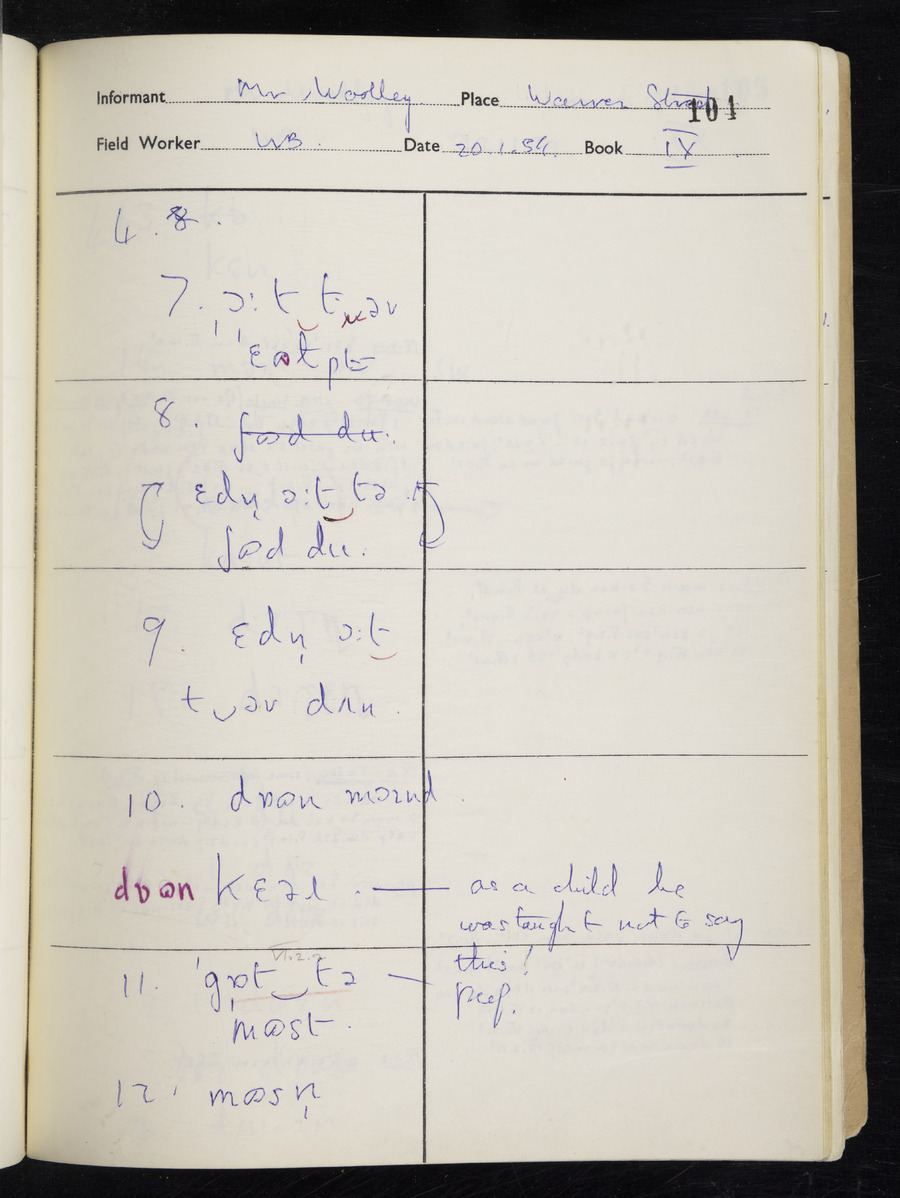 Informant Mr Woolley Place Warren Street
101
Field Worker WB. Date 20.1.54. Book IX
4. 8.
7. ɔ:t t‿əv
ˈɛətpɫ
8. ʃɷd du.
ɛdn̩ ɔ:t‿tə.
ʃɷd du.
9. ɛdn̩ ɔ:t
t‿əv dʌn.
10. dɒɷn mɔɪnd.
dɒɷn kɛəɹ. — as a child he
was taught not to say
this!
11. ˈgɒt‿tə — pref.
VI.2.2
mɷst.
12. mɷsn̩